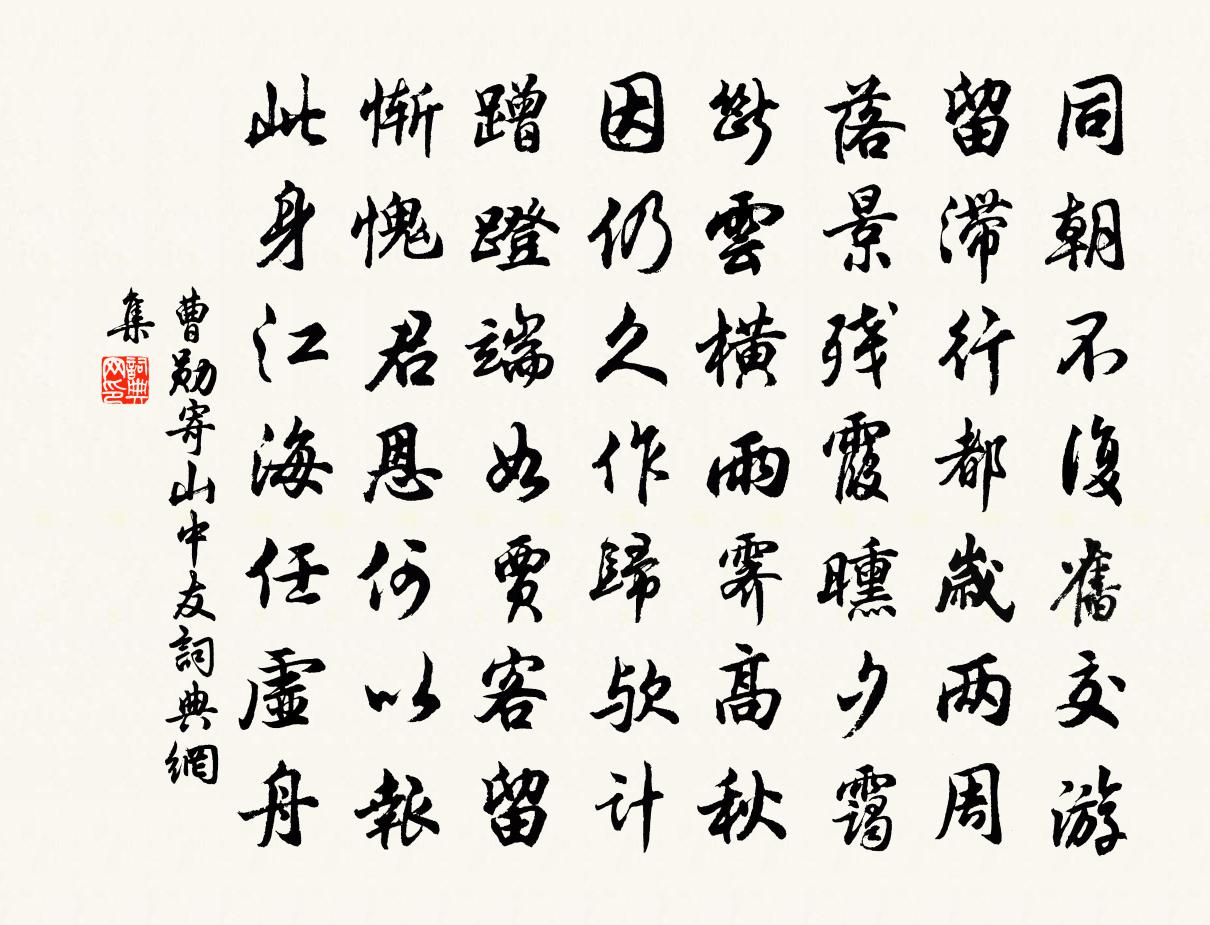 同朝不復舊交游
留滯行都歲兩周
落景殘霞曛夕靄
斷雲橫雨霽高秋
因仍久作歸歟計
蹭蹬端如賈客留
慚愧君恩何以報
此身江海任虛舟
曹勛寄山中友詞典網
集
詞典
网印